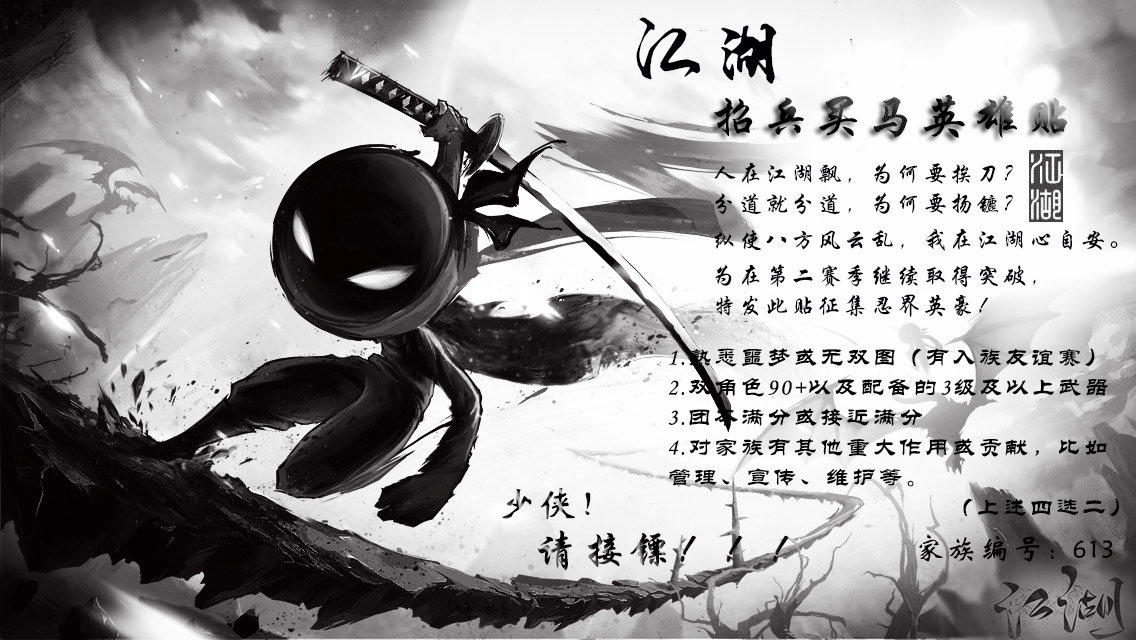 江湖
招兵买马英雄贴
人在江湖飘，为何要挨刀？
分道就分道，为何要扬镳？
江湖
纵使八方风云乱，我在江湖心自安。
为在第二赛季继续取得突破，
特发此贴征集忍界英豪！
1.熟悉噩梦或无双图（有入族友谊赛）
2.双角色90+以及配备的3级及以上武器
3.团本满分或接近满分
4.对家族有其他重大作用或贡献，比如
管理、宣传、维护等。
（上述四选二）
少侠！
请接镖！！！
家族编号：613
江湖